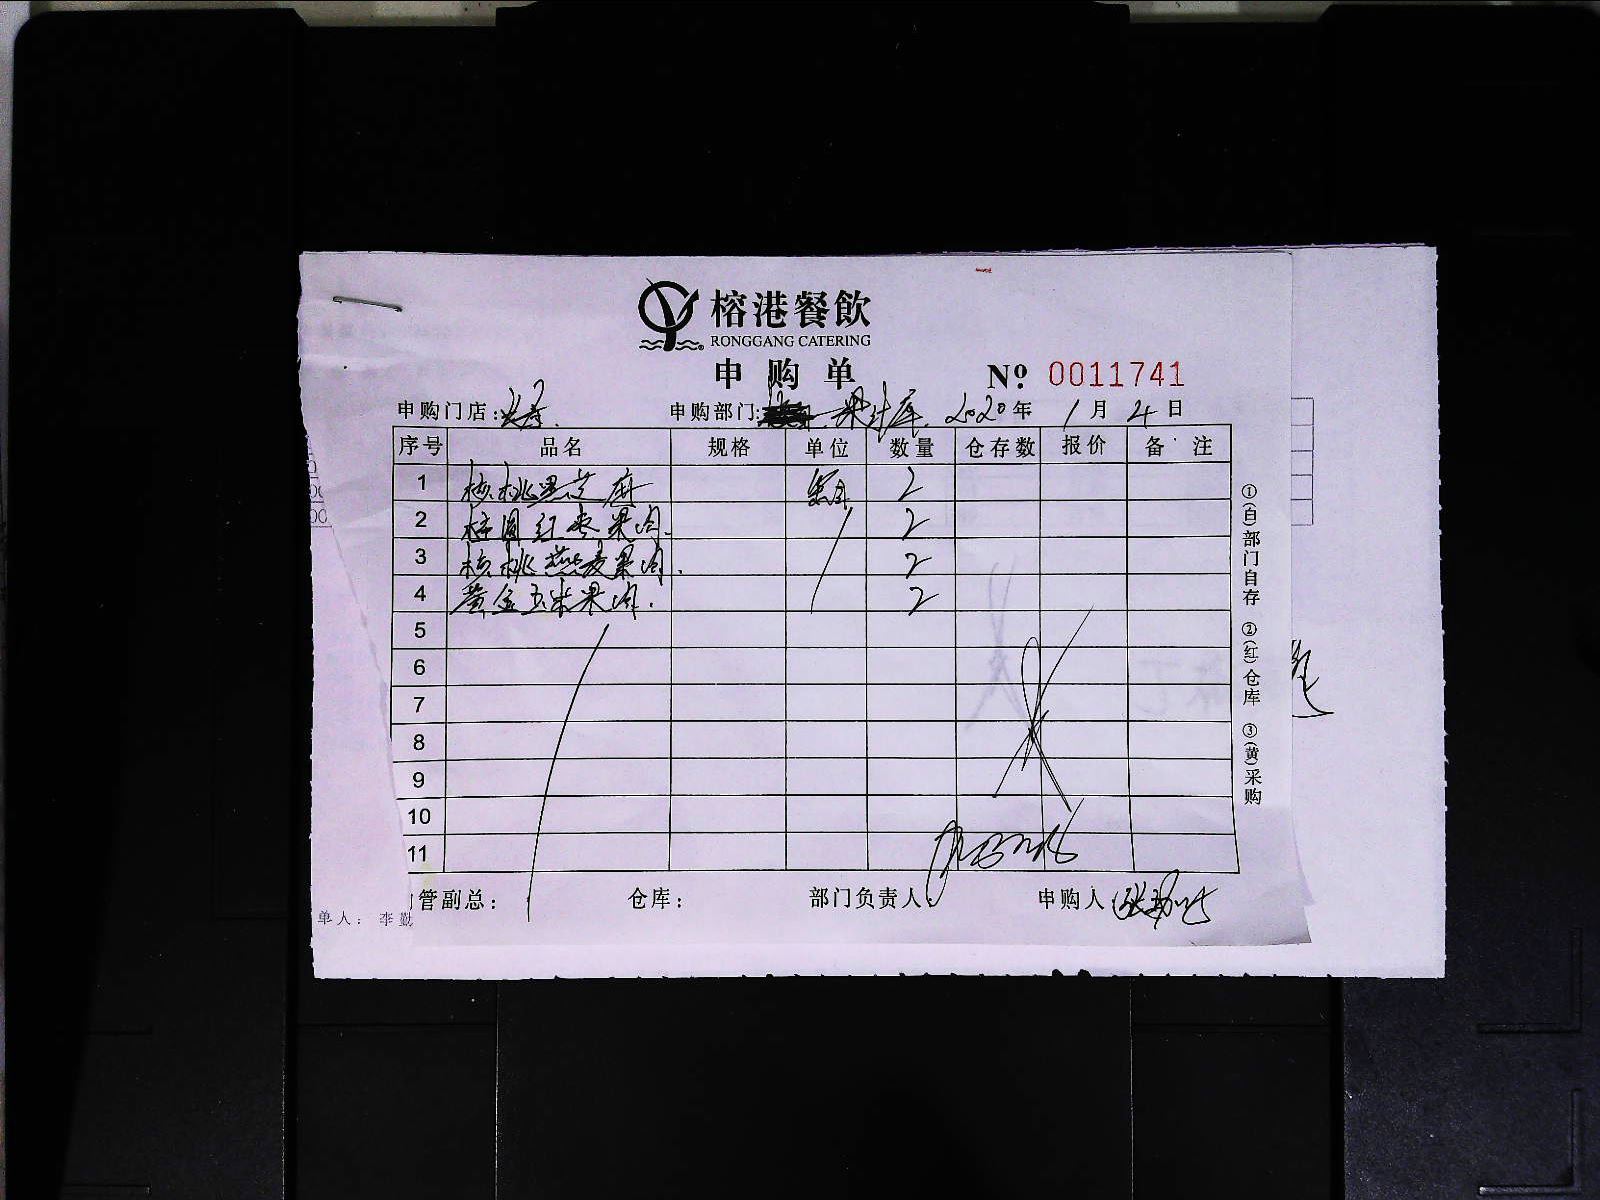 榕港餐飲
RONGGANG CATERING
申购单 Nº 0011741
申购门店: 申购部门: 果汁库 2020年1月4日
序号 品名 规格 单位 数量 仓存数 报价 备注
1 核桃黑芝麻 2
2 桂圆红枣果肉. 2
3 核桃燕麦果肉. 2
4 黄金玉米果肉. 2
5
6
7
8
9
10
11
管副总: 仓库: 部门负责人: 申购人:
①(白)部门自存 ②(红)仓库 ③(黄)采购
单人: 李勤